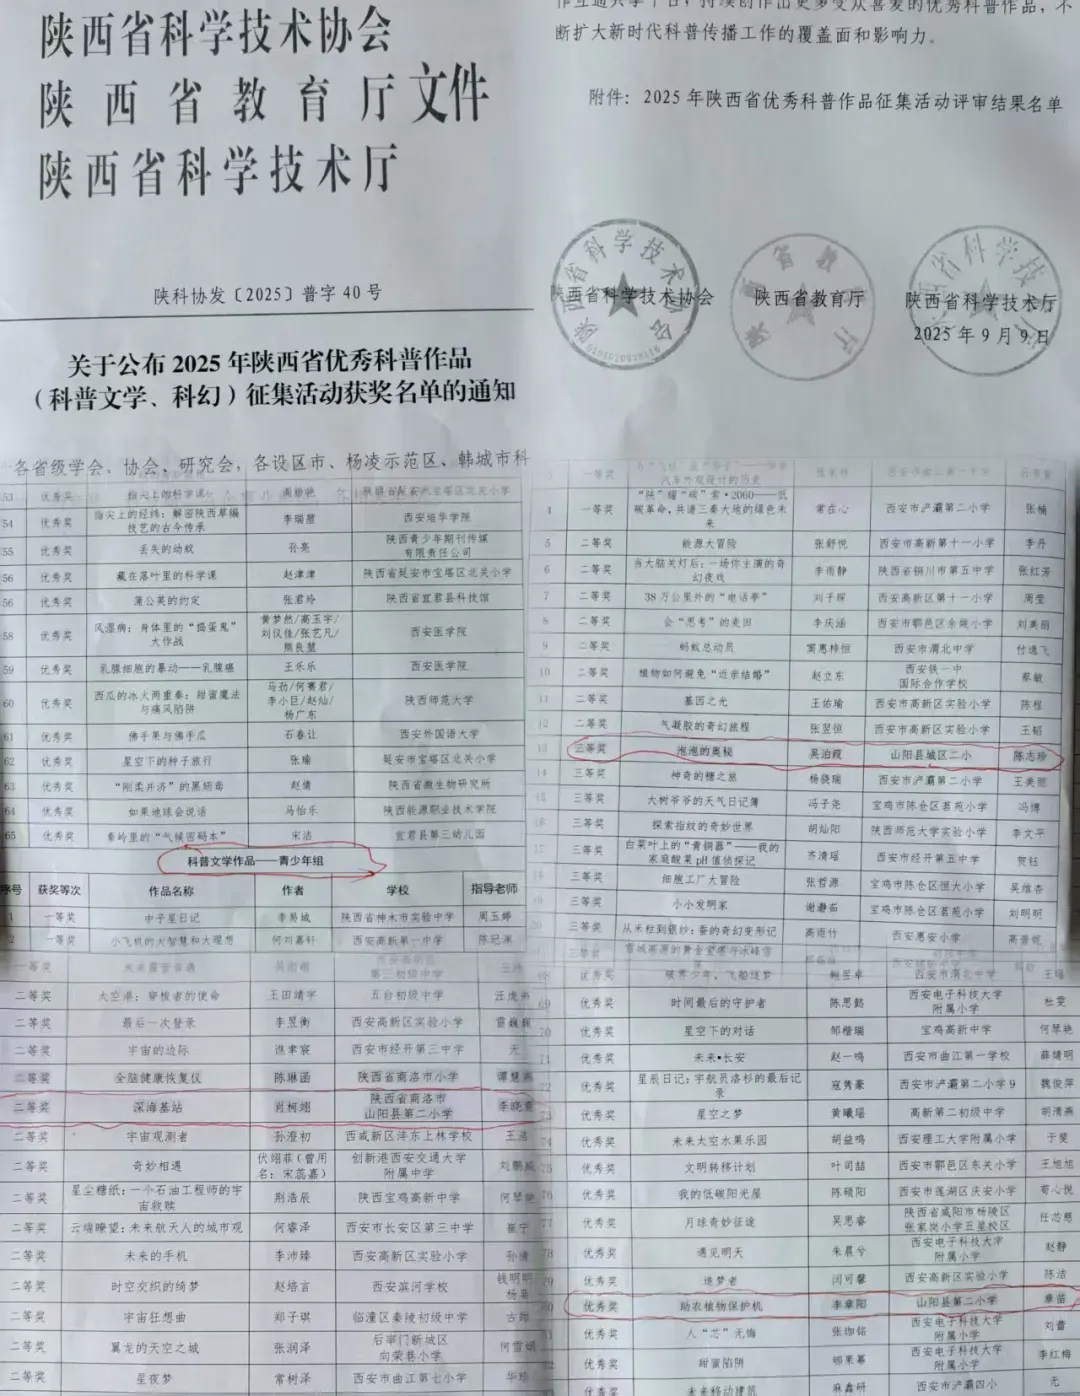 陕西省科学技术协会
陕西省教育厅文件
陕西省科学技术厅
陕科协发〔2025〕普字 40 号
关于公布 2025 年陕西省优秀科普作品
（科普文学、科幻）征集活动获奖名单的通知
各省级学会、协会、研究会，各设区市、杨凌示范区、韩城市科
断扩大新时代科普传播工作的覆盖面和影响力。
附件：2025 年陕西省优秀科普作品征集活动评审结果名单
陕西省科学技术协会 陕西省教育厅 陕西省科学技术厅
2025 年 9 月 9 日
53 优秀奖 指尖上的科学课
54 优秀奖 指尖上的经纬：解密陕西草编技艺的古今传承 李瑞堃 西安培华学院
55 优秀奖 丢失的动蚁 孙亮 陕西青少年期刊传媒有限责任公司
56 优秀奖 藏在落叶里的科学课 赵津津 陕西省延安市宝塔区北关小学
56 优秀奖 蒲公英的约定 张君玲 陕西省宜君县科技馆
58 优秀奖 风湿病：身体里的“捣蛋鬼”大作战 黄梦然/高玉宇/刘仪佳/张艺凡/熊良堃 西安医学院
59 优秀奖 乳腺细胞的暴动——乳腺癌 王乐乐 西安医学院
60 优秀奖 西瓜的冰火两重奏：甜蜜魔法与痛风陷阱 马劲/何赛君/李小巨/赵灿/杨广东 陕西师范大学
61 优秀奖 佛手果与佛手瓜 石春让 西安外国语大学
62 优秀奖 星空下的种子旅行 张瑜 延安市宝塔区北关小学
63 优秀奖 “刚柔并济”的黑曲霉 赵倩 陕西省微生物研究所
64 优秀奖 如果地球会说话 马怡乐 陕西能源职业技术学院
65 优秀奖 秦岭里的“气候密码本” 宋洁 宜君县第三幼儿园
科普文学作品——青少年组
序号 获奖等次 作品名称 作者 学校 指导老师
1 一等奖 中子星日记 李易城 陕西省神木市实验中学 周玉婷
2 一等奖 小飞机的大智慧和大理想 何刘嘉轩 西安高新第一中学
一等奖
二等奖 太空港：穿梭者的使命 王田靖宇 五台初级中学
二等奖 最后一次登录 李昱衡 西安高新区实验小学
二等奖 宇宙的边际 西安市经开第三中学 无
二等奖 全脑健康恢复仪 陈琳函 陕西省商洛市小学
二等奖 深海基站 肖柯翊 陕西省商洛市山阳县第二小学
二等奖 宇宙观测者 孙澄初 西咸新区沣东上林学校
二等奖 奇妙相遇 伏翊菲（曾用名：宋蕊嘉） 创新港西安交通大学附属中学
二等奖 星尘糖纸：一个石油工程师的宇宙救赎 荆浩辰 陕西宝鸡高新中学
二等奖 云端瞭望：未来航天人的城市观 何睿泽 西安市长安区第三中学 崔宁
二等奖 未来的手机 李沛臻 西安高新区实验小学
二等奖 时空交织的绮梦 赵培言 西安滨河学校
二等奖 宇宙狂想曲 郑子琪 临潼区秦陵初级中学
二等奖 翼龙的天空之城 张润泽 后宰门新城区向荣巷小学
二等奖 星夜梦 常树泽 西安市曲江第七小学
一等奖 汽车外观设计的历史
4 一等奖 “陕”耀“碳”索·2060——低碳革命，共谱三秦大地的绿色未来 常在心 西安市浐灞第二小学 张楠
5 二等奖 能源大冒险 张舒悦 西安市高新第十一小学 李丹
6 二等奖 当大脑关灯后：一场你主演的奇幻夜戏 李雨静 陕西省铜川市第五中学 张红芳
7 二等奖 38 万公里外的“电话亭” 刘子琛 西安高新区第十一小学 周莹
8 二等奖 会“思考”的麦田 李庆涵 西安市鄠邑区余姚小学 刘美丽
9 二等奖 蚂蚁总动员 西安市渭北中学 付逸飞
10 二等奖 植物如何避免“近亲结婚” 赵立东 西安铁一中国际合作学校 蔡敏
11 二等奖 基因之光 王佑瑜 西安市高新区实验小学 陈程
12 二等奖 气凝胶的奇幻旅程 张昱恒 西安市高新区实验小学 王韬
13 三等奖 泡泡的奥秘 吴泊霞 山阳县城区二小 陈志珍
14 三等奖 神奇的糖之旅 杨铙瑞 西安市浐灞第二小学 王美丽
15 三等奖 大树爷爷的天气日记簿 冯子尧 宝鸡市陈仓区茗苑小学 冯博
16 三等奖 探索指纹的奇妙世界 胡灿阳 陕西师范大学实验小学 李文平
17 三等奖 白菜叶上的“青铜器”——我的家庭酸菜 pH 值侦探记 齐清瑶 西安市经开第五中学 贺钰
18 三等奖 细胞工厂大冒险 张哲源 宝鸡市陈仓区恒大小学 吴维杏
19 三等奖 小小发明家 谢灏茹 宝鸡市陈仓区茗苑小学 刘明明
20 三等奖 从米粒到银纱：蚕的奇幻变形记 高雨竹 西安惠安小学
三等奖
68 优秀奖 西安市渭北中学
69 优秀奖 时间最后的守护者 陈思懿 西安电子科技大学附属小学 杜雯
70 优秀奖 星空下的对话 邹楷瑞 宝鸡高新中学 何琴艳
71 优秀奖 未来·长安 赵一鸣 西安市曲江第一学校 薛婧明
72 优秀奖 星辰日记：宇航员洛杉的最后记录 寇隽豪 西安市浐灞第二小学 9 魏俊萍
73 优秀奖 星空之梦 黄曦瑶 高新第二初级中学 胡清燕
74 优秀奖 未来太空水果乐园 胡益鸣 西安理工大学附属小学 于斐
75 优秀奖 文明转移计划 叶司喆 西安市鄠邑区东关小学 王旭旭
76 优秀奖 我的低碳阳光屋 陈硕阳 西安市莲湖区庆安小学 苟心悦
77 优秀奖 月球奇妙征途 吴思睿 陕西省咸阳市杨陵区张家岗小学五星校区 任芯慈
78 优秀奖 遇见明天 朱晨兮 西安电子科技大学附属小学 赵静
79 优秀奖 追梦者 闫可馨 西安高新区实验小学 陈洁
80 优秀奖 助农植物保护机 李章阳 山阳县第二小学 章苗
优秀奖 人“芯”无悔 张伽铭 西安电子科技大学附属小学 刘蕾
优秀奖 甜蜜陷阱 西安电子科技大学附属小学 李红梅
优秀奖 未来移动建筑 麻鑫研 西安市浐灞四小 无